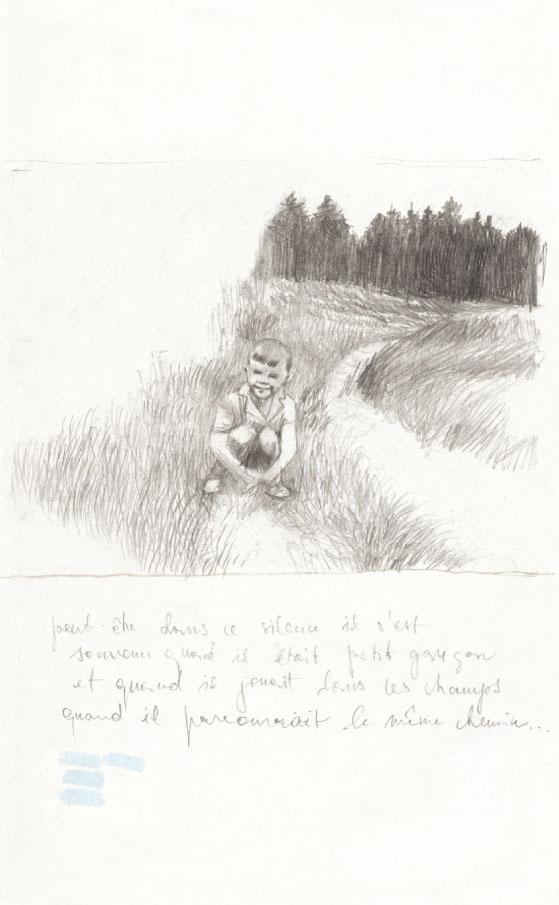 peut-être dans ce silence il s'est
souvenu quand il était petit garçon
et quand il jouait dans les champs
quand il parcourait le même chemin...